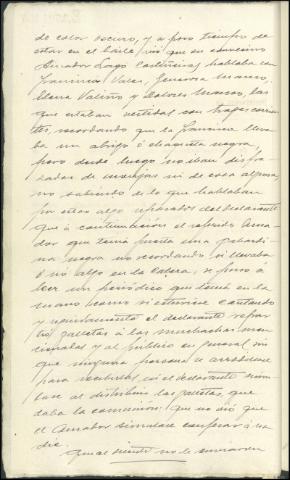 de color oscuro, y a poco tiempo de
estar en el baile, vió que su convecino
Amador Lago Castiñeiras hablaba con
Francisca Vales, Genoveva Manso,
Elena Valiño y Dolores Mancos, las
que estaban vestidas con trajes corrien
tes, recordando que la Francisca lleva
ba un abrigo o chaqueta negra,
pero desde luego no iban disfra
zadas de monjas ni de cosa alguna,
no sabiendo de lo que hablaban
por estar algo separados del declarante
que a continuación el referido Ama
dor que tenía puesta una gabardi
na negra no recordando si llevaba
o no algo en la cabeza, se puso a
leer un periódico que tenía en la
mano como si estuviese cantando
y seguidamente el declarante repar
tió galletas a las muchachas men
cionadas y al público en general sin
que ninguna persona se arrodillase
para recibirlas, ni el declarante simu
lase al distribuir las galletas, que
daba la comunión; que no vió que
el Amador simulase confesar a na
die.
Que al siente no le enviaron